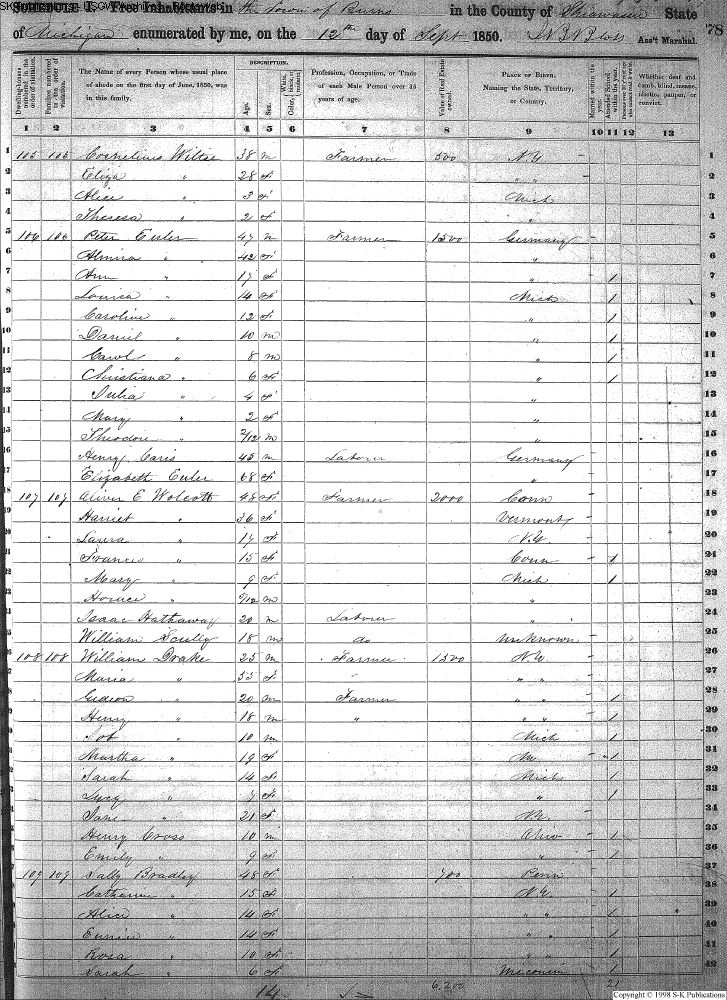 SCHEDULE I. Free Inhabitants in the Town of Burns in the County of Shiawassee State
of Michigan enumerated by me, on the 12th day of Sept 1850. Ass't Marshal. 78
Dwelling-houses numbered in the order of visitation.
Families numbered in the order of visitation.
The Name of every Person whose usual place of abode on the first day of June, 1850, was in this family.
DESCRIPTION.
Age.
Sex.
White, Color, black, or mulatto.
Profession, Occupation, or Trade of each Male Person over 15 years of age.
Value of Real Estate owned.
PLACE OF BIRTH. Naming the State, Territory, or Country.
Married within the year.
Attended School within the year.
Whether deaf and dumb, blind, insane, idiotic, pauper, or convict.
1 2 3 4 5 6 7 8 9 10 11 12 13
1 105 105 Cornelius Wiltse 38 m Farmer 500 N.Y. 1
2 Eliza " 28 f " " 2
3 Alice " 3 f Mich 3
4 Theresa " 2 f " 4
5 106 106 Peter Euler 47 m Farmer 1500 Germany 5
6 Almira " 42 f " 6
7 Ann " 17 f " 1 7
8 Louisa " 14 f Mich 1 8
9 Caroline " 12 f " 1 9
10 Daniel " 10 m " 1 10
11 Carol " 8 m " 1 11
12 Christiana " 6 f " 1 12
13 Julia " 4 f " 13
14 Mary " 2 f " 14
15 Theodore " 2/12 m " 15
16 Henry Caris 45 m Labourer Germany 16
17 Elizabeth Euler 68 f " 17
18 107 107 Oliver E Wolcott 48 f Farmer 2000 Conn 18
19 Harriet " 36 f Vermont 19
20 Laura " 17 f N.Y. 20
21 Frances " 15 f Conn 1 21
22 Mary " 9 f Mich 1 22
23 Horace " m " 23
24 Isaac Hathaway 20 m Labourer " 24
25 William Scully 18 m do unknown 25
26 108 108 William Drake 25 m Farmer 1500 N.Y. 26
27 Maria " 53 f " " 27
28 Gideon " 20 m Farmer " " 1 28
29 Henry " 18 m " " " 1 29
30 Job " 10 m Mich 1 30
31 Martha " 19 f 1 31
32 Sarah " 14 f Mich 1 32
33 Lucy " 7 f " 1 33
34 Jane " 21 f 34
35 Henry Cross 10 m Ohio 1 35
36 Emily " 9 f " 1 36
37 109 109 Sally Bradley 48 f 700 Penn 37
38 Catharine " 15 f N.Y. 1 38
39 Alice " 14 f " " 1 39
40 Eunice " 14 f " " 1 40
41 Rosa " 10 f " 1 41
42 Sarah " 6 f Wisconsin 1 42
14 6,200
Copyright © 1998 S-K Publications